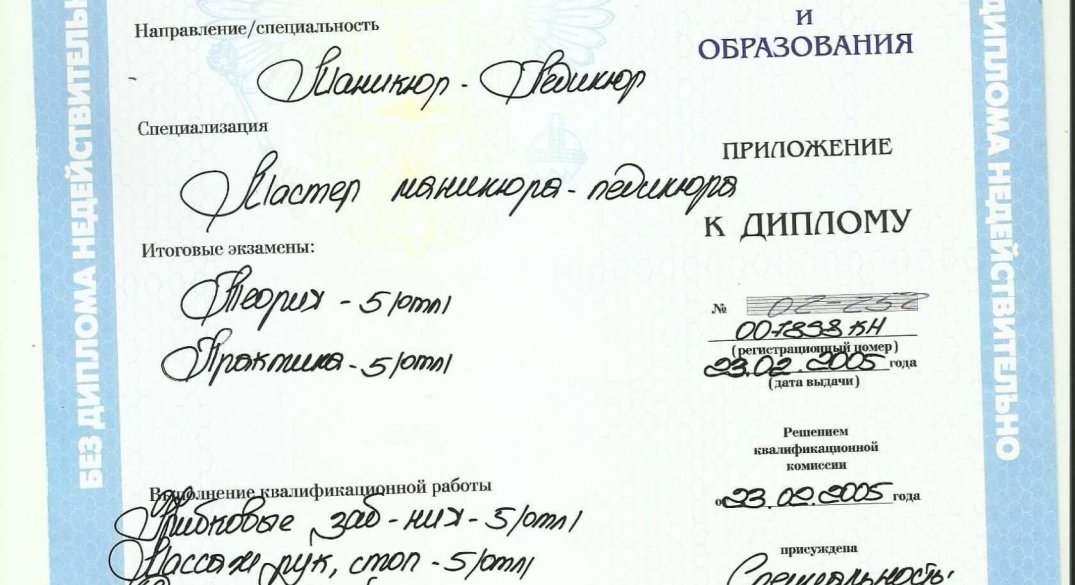 БЕЗ ДИПЛОМА НЕДЕЙСТВИТЕЛЬНО
Направление/специальность
Маникюр - Педикюр
Специализация
Мастер маникюра-педикюра
Итоговые экзамены:
Теория - 5/отл/
Практика - 5/отл/
Выполнение квалификационной работы
Грибковые заб-ния - 5/отл/
Массаж рук, стоп - 5/отл/
И
ОБРАЗОВАНИЯ
ПРИЛОЖЕНИЕ
К ДИПЛОМУ
№
001838 КН
(регистрационный номер)
23.02.2005 года
(дата выдачи)
Решением
квалификационной
комиссии
от 23.02.2005 года
присуждена
Специальность:
ДИПЛОМА НЕДЕЙСТВИТЕЛЬНО